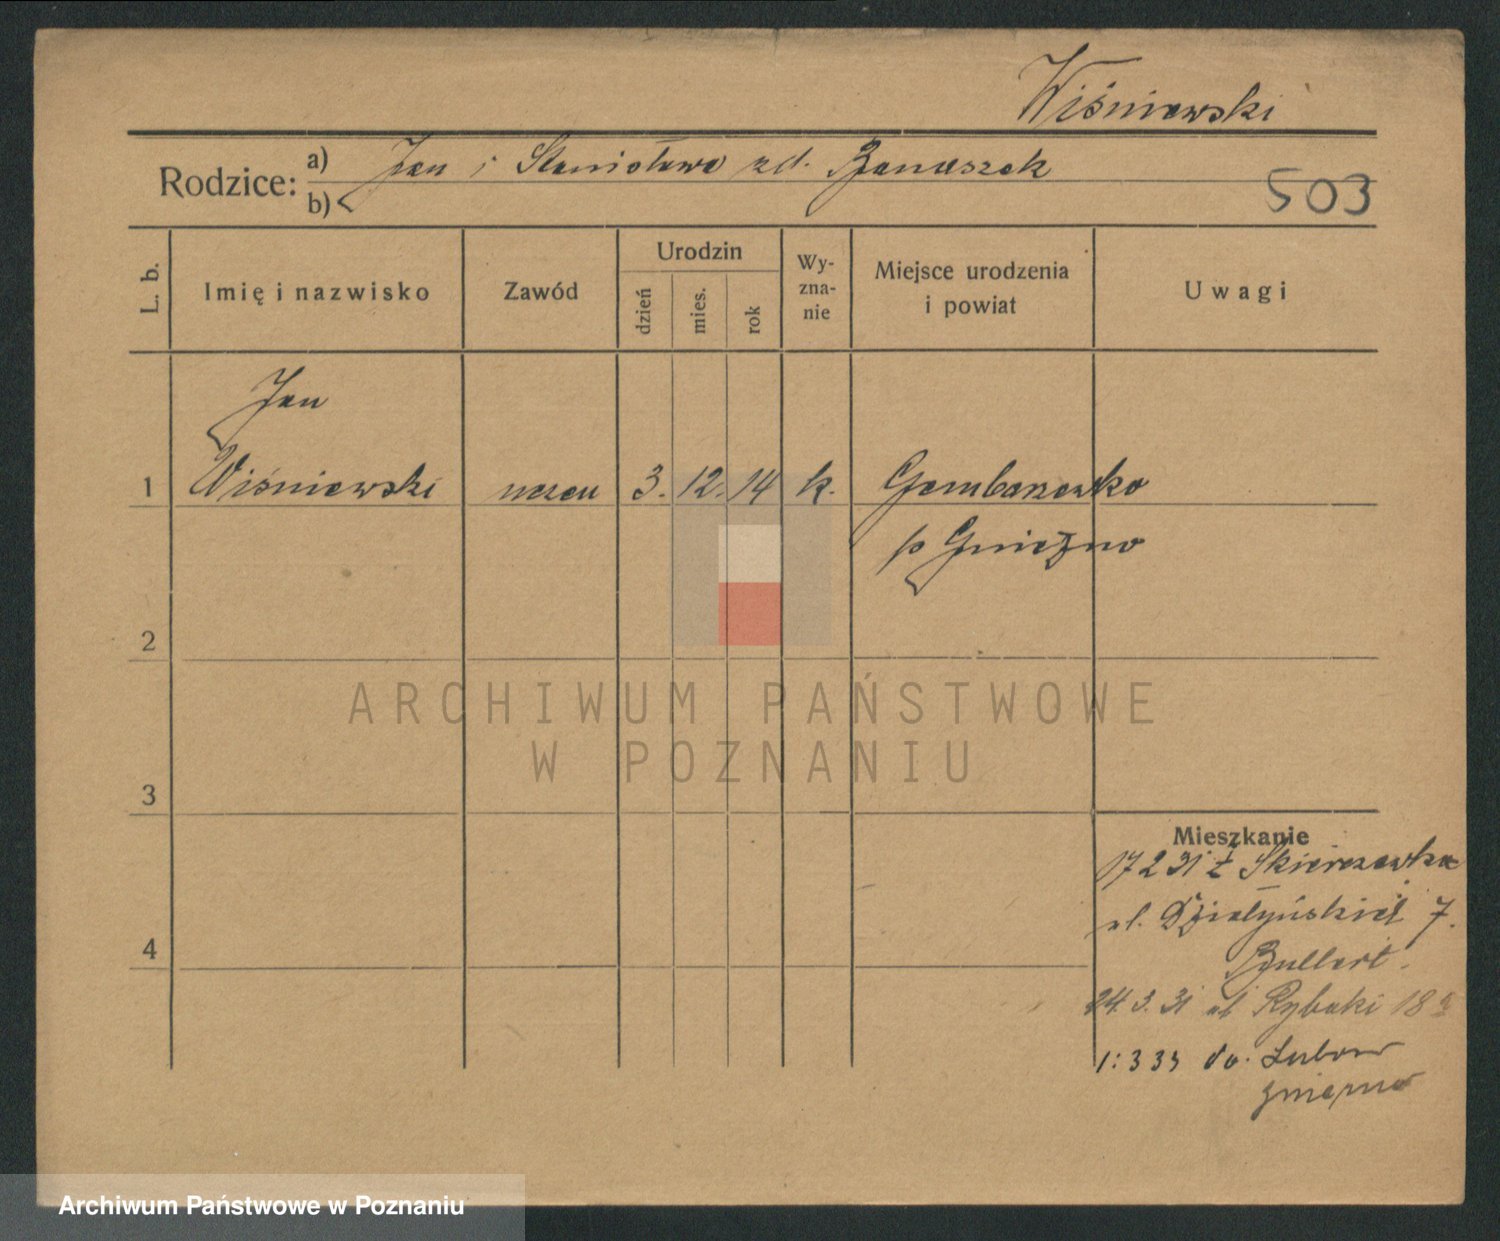 Wiśniewski
Rodzice: a) Jan i Stanisława zd. Banaszek
b)
503
L. b. Imię i nazwisko Zawód Urodzin dzień mies. rok Wy-zna-nie Miejsce urodzenia i powiat Uwagi
Jan
1 Wiśniewski uczeń 3. 12. 14 k. Gembarzewko
p Gniezno
2
ARCHIWUM PAŃSTWOWE
W POZNANIU
3
Mieszkanie
17 2 31 z Skierzewka
ul. Działyńskich 7.
4
Bullert.
24. 3. 31 ul Rybaki 18
1: 3 33 do. Łubow
gniezno
Archiwum Państwowe w Poznaniu